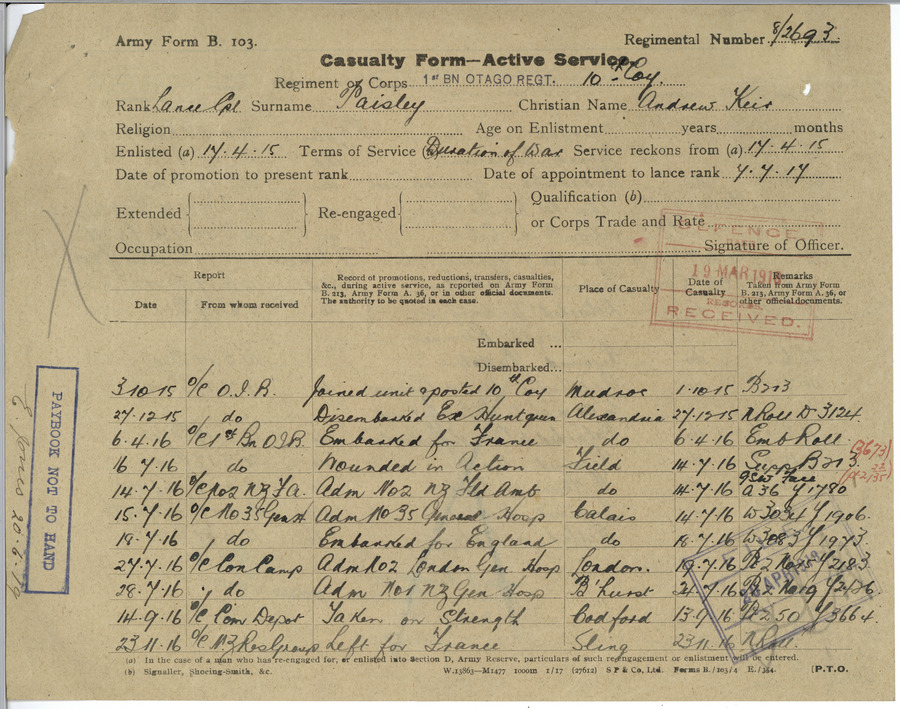 Army Form B. 103.
Regimental Number 8/2693
Casualty Form—Active Service.
Regiment or Corps 1st BN OTAGO REGT. 10th Coy.
Rank Lance Cpl Surname Paisley Christian Name Andrew Keir
Religion Age on Enlistment years months
Enlisted (a) 17.4.15 Terms of Service (Duration of War Service reckons from (a) 17.4.15
Date of promotion to present rank Date of appointment to lance rank 7.7.17
Extended Re-engaged Qualification (b)
or Corps Trade and Rate
Occupation Signature of Officer.
DEFENCE
19 MAR 191
RECORDS
RECEIVED.
Report
Date From whom received
Record of promotions, reductions, transfers, casualties, &c., during active service, as reported on Army Form B. 213, Army Form A. 36, or in other official documents. The authority to be quoted in each case.
Place of Casualty
Date of Casualty
Remarks
Taken from Army Form B. 213, Army Form A. 36, or other official documents.
Embarked ...
Disembarked ...
3.10.15 O/C O.I.B. Joined unit & posted 10th Coy Mudros 1.10.15 B213
27.12.15 do Disembarked Ex Huntsgreen Alexandria 27.12.15 N Roll D 3124
6.4.16 O/C 1st Bn O.I.B. Embarked for France do 6.4.16 Emb Roll
16.7.16 do Wounded in Action Field 14.7.16 Supp B213
GSW Face
14.7.16 O/C No2 NZ F.A. Adm No2 NZ Fld Amb do 14.7.16 A36 Y1780
15.7.16 O/C No 35 Gen H Adm No 35 General Hosp Calais 14.7.16 W3034 Y1906
18.7.16 do Embarked for England do 18.7.16 W3083 Y1973
27.7.16 O/C Con Camp Adm No2 London Gen Hosp London 19.7.16 No15 Y2183
28.7.16 do Adm No1 NZ Gen Hosp B'hurst 24.7.16 No19
14.9.16 O/C Com Depot Taken on Strength Codford 13.9.16 250 Y3664
23.11.16 O/C NZ Res Group Left for France Sling 23.11.16 N Roll
PAYBOOK NOT TO HAND
20.6.19
(a) In the case of a man who has re-engaged for, or enlisted into Section D, Army Reserve, particulars of such re-engagement or enlistment will be entered.
(b) Signaller, Shoeing-Smith, &c. W.13863—M1477 1000m 1/17 (27612) S P & Co., Ltd. Forms B./103/4 E./354. [P.T.O.